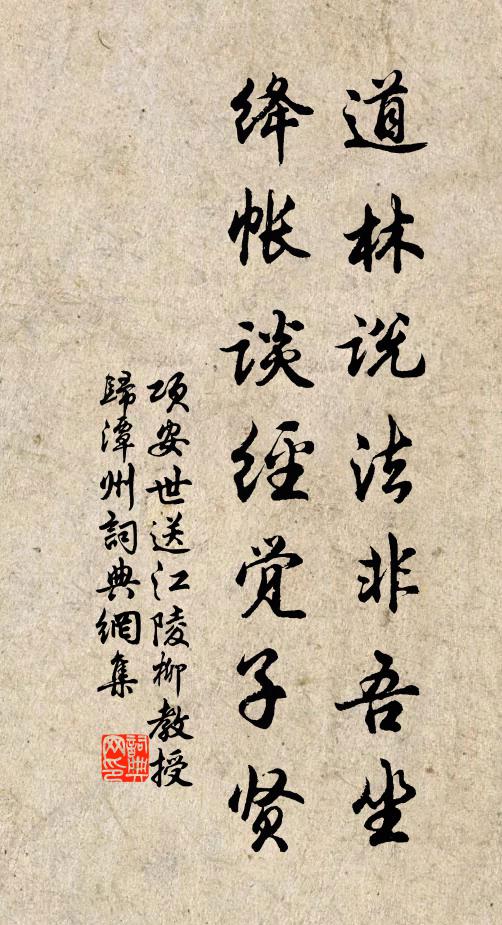 道林说法非吾坐
绛帐谈經觉子贤
项安世送江陵柳教授
歸潭州詞典網集
詞典網印